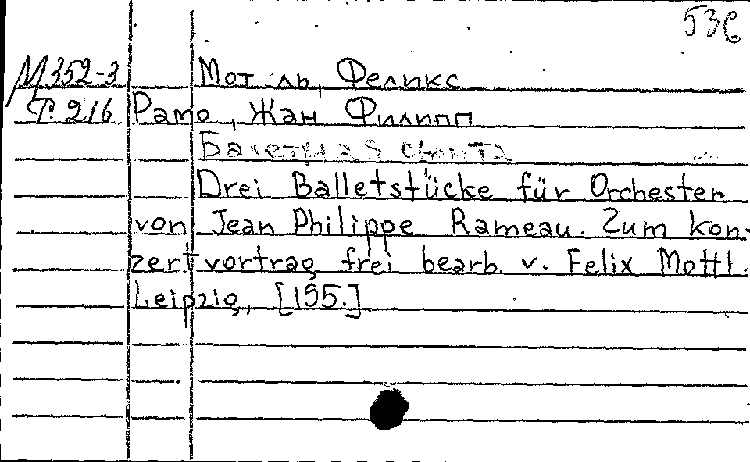 53c
М352-3 Мот ль, Феликс
Р.216 Рамо, Жан Филипп
Балетная сюита
Drei Balletstücke für Orchester
von Jean Philippe Rameau. Zum kon-
zertvortrag frei bearb. v. Felix Mottl.
Leipzig, [195.]